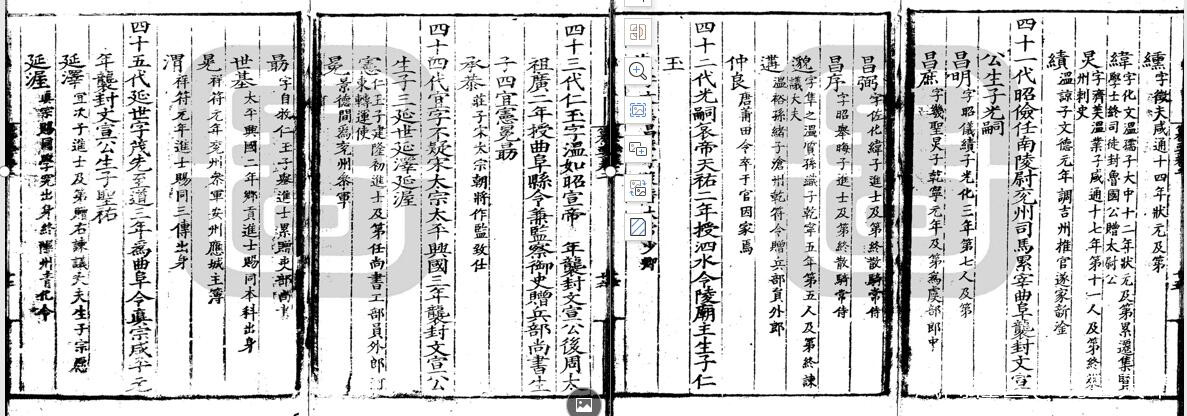 纁字徽夫咸通十四年狀元及第
緯字化文溫孺子大中十二年狀元及第累遷集賢
學士終司徒封魯國公贈太尉公
炅字齊美溫業子咸通十七年第十一人及第終
州刺史
續溫諒子文德元年調吉州推官遂家新淦
四十一代昭儉任南陵尉兗州司馬累宰曲阜襲封文宣
公生子光嗣
昌明字昭儀續子光化三年第七人及第
昌庶字幾聖炅子乾寧元年及第為虞部郎中
昌弼字佐化緯子進士及第終散騎常侍
昌序字昭舉晦子進士及第終散騎常侍
邈字隼之溫質孫讖子乾寧五年第五人及第終諫
議大夫
遘溫裕孫緒子滄州乾符令贈兵部員外郎
仲良唐莆田令卒于官因家焉
四十二代光嗣哀帝天祐二年授泗水令陵廟主生子仁
玉
四十三代仁玉字溫如昭宣帝 年襲封文宣公後周太
祖廣二年授曲阜縣令兼監察御史贈兵部尚書生
子四宜憲冕勗
承恭莊子宋太宗朝將作監致仕
四十四代宜字不疑宋太宗太平興國三年襲封文宣公
生子三延世延澤延渥
憲仁玉子建隆初進士及第任尚書工部員外郎
東轉運使
冕景德間為兗州參軍
勗字自牧仁玉子舉進士累贈吏部尚書
世基太平興國二年鄉貢進士賜同本科出身
冕祥符元年兗州參軍安州應城主簿
渭祥符元年進士賜同三傳出身
四十五代延世字茂先至道三年為曲阜令真宗咸平元
年襲封文宣公生子聖祐
延澤宜次子進士及第贈右諫議大夫生子宗愿
延渥真宗賜同學究出身終